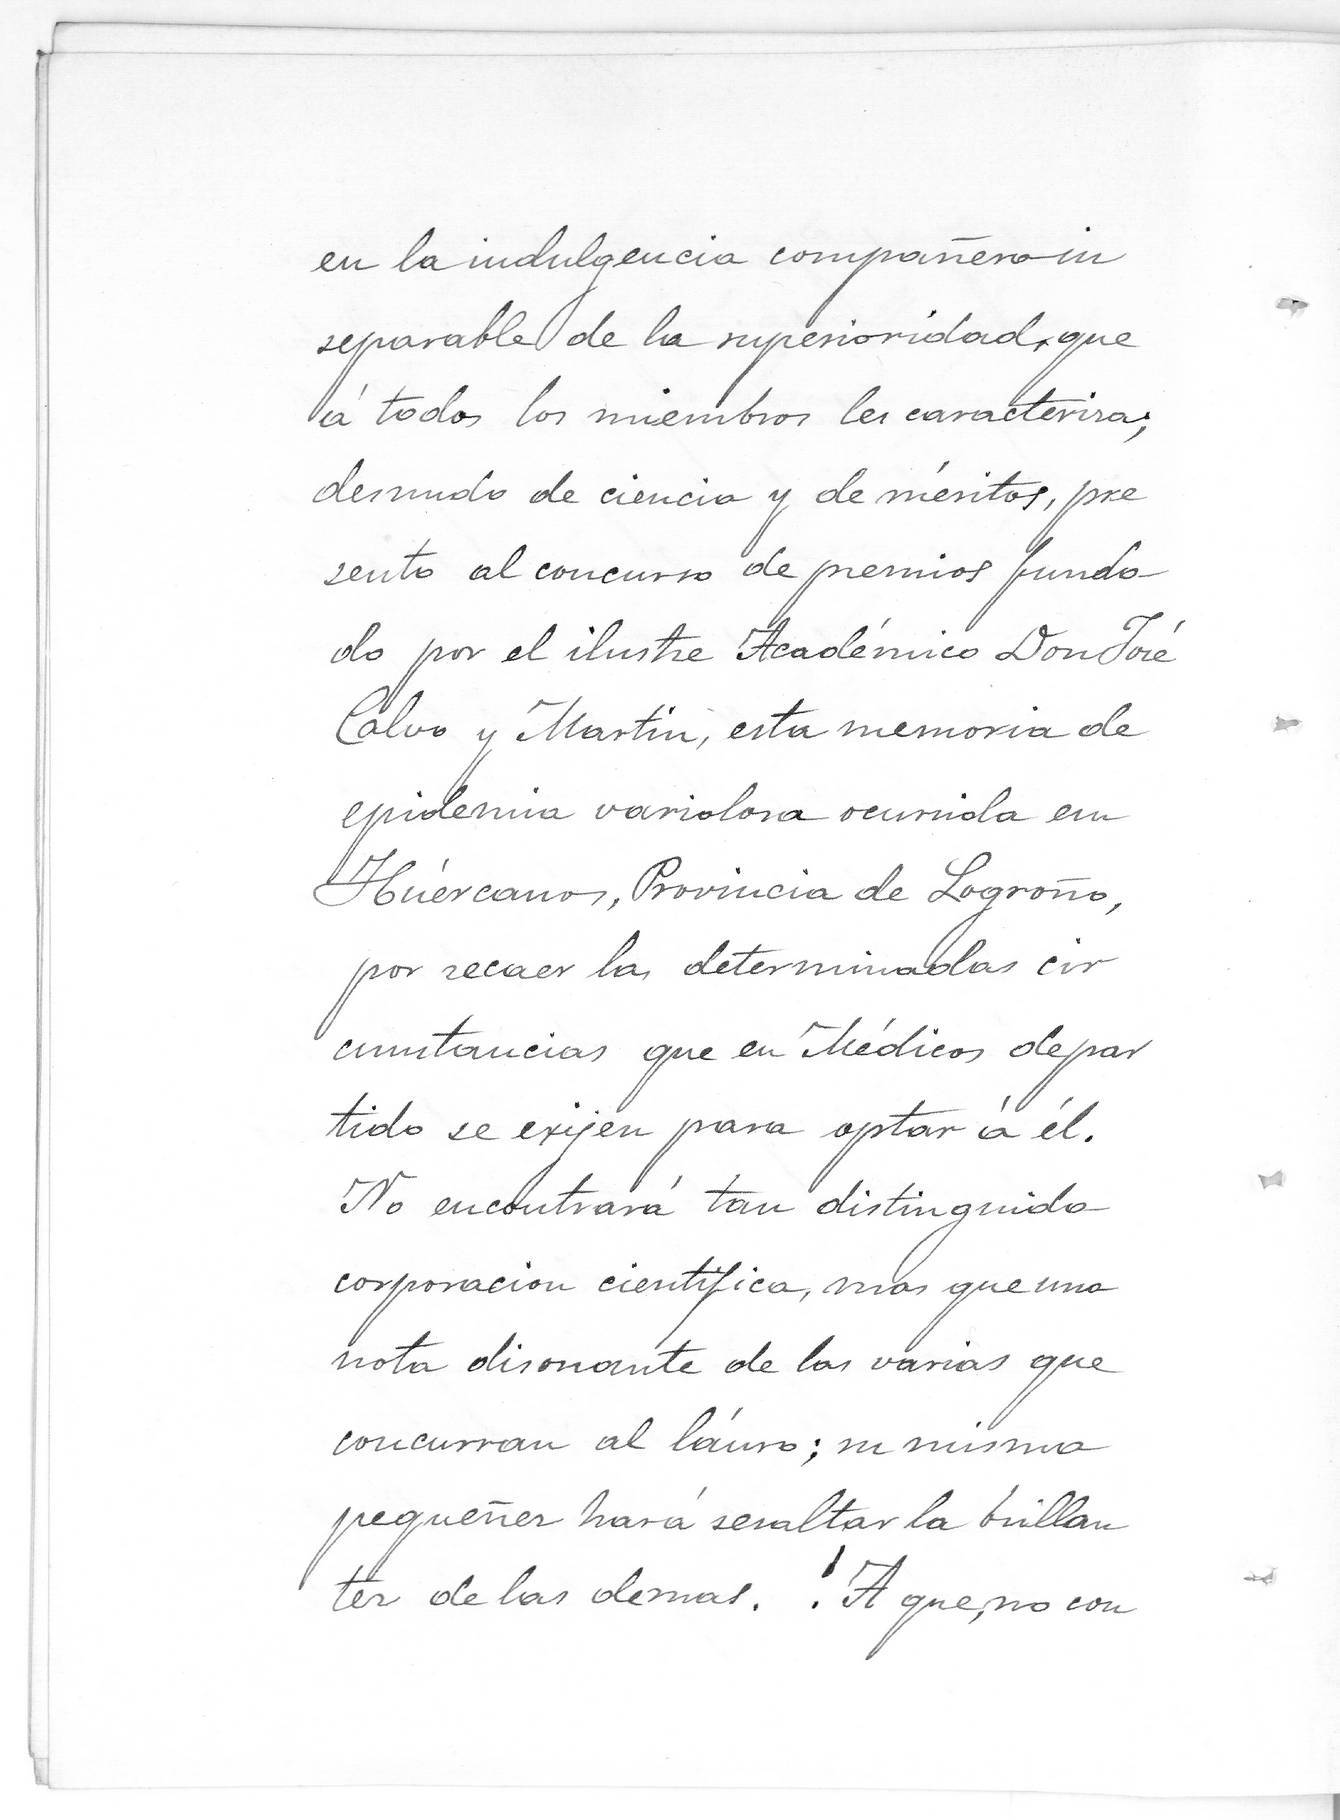 en la indulgencia compañera in
separable de la superioridad, que
á todos los miembros les caracteriza;
desnudo de ciencia y de méritos, pre
sento al concurso de premios funda
do por el ilustre Académico Don José
Calvo y Martin, esta memoria de
epidemia variolosa ocurrida en
Húercanos, Provincia de Logroño,
por recaer las determinadas cir
cunstancias que en Médicos de par
tido se exijen para optar á él.
No encontrará tan distinguida
corporacion cientifica, mas que una
nota disonante de las varias que
concurran al láuro; su misma
pequeñez hará resaltar la brillan
tez de las demas. ¡A que, no con